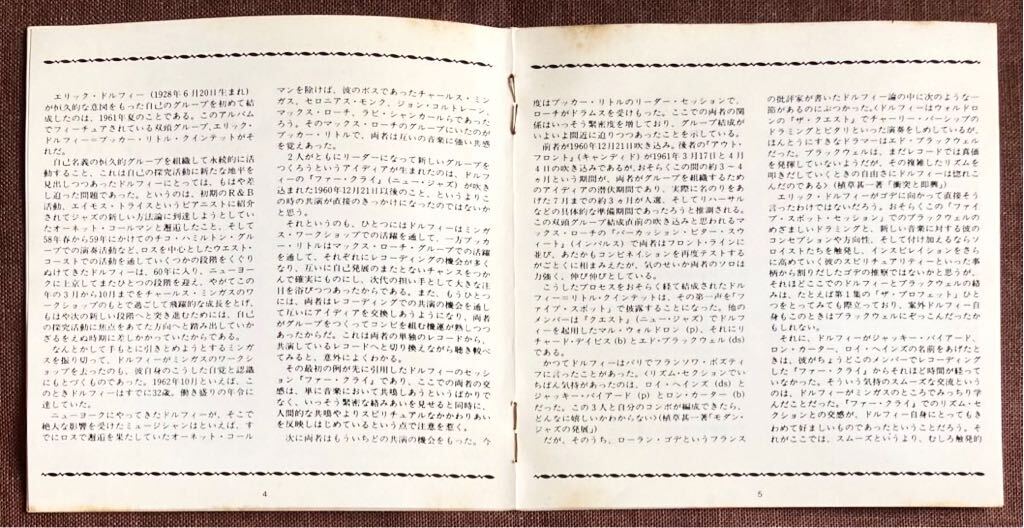 エリック・ドルフィー (1928年6月20日生まれ)
が恒久的な意図をもった自己のグループを初めて結
成したのは、1961年夏のことである。このアルバム
でフィーチュアされている双頭グループ、エリック・
ドルフィー=ブッカー・リトル・クインテットがそ
れだ。
自己名義の恒久的グループを組織して永続的に活
動すること、これは自己の探究活動に新たな地平を
見出しつつあったドルフィーにとっては、もはや差
し迫った問題であった。というのは、初期のR&B
活動、エイモス・トライスというピアニストに紹介
されてジャズの新しい方法論に到達しようとしてい
たオーネット・コールマンと邂逅したこと、そして
58年春から59年にかけてのチコ・ハミルトン・グル
ープでの演奏活動など、ロスを中心としたウエスト・
コーストでの活動を通していくつかの段階をくぐり
ぬけてきたドルフィーは、60年に入り、ニューヨー
クに上京してまたひとつの段階を迎え、やがてこの
年の3月から10月までをチャールス・ミンガスのワ
ークショップのもとで過ごして飛躍的な成長をとげ、
もはや次の新しい段階へと突き進むためには、自己
の探究活動に焦点をあてた方向へと踏み出していか
ざるをえぬ時期に差しかかっていたからである。
なんとかして手もとに引きとめようとするミンガ
スを振り切って、ドルフィーがミンガスのワークシ
ョップを去ったのも、彼自身のこうした自覚と認識
にもとづくものであった。1962年10月といえば、こ
のときドルフィーはすでに32歳。働き盛りの年令に
達していた。
ニューヨークにやってきたドルフィーが、そこで
絶大な影響を受けたミュージシャンといえば、す
でにロスで邂逅を果たしていたオーネット・コール
マンを除けば、彼のボスであったチャールス・ミン
ガス、セロニアス・モンク、ジョン・コルトレーン、
マックス・ローチ、ラビ・シャンカールらであった
ろう。そのマックス・ローチのグループにいたのが
ブッカー・リトルで、両者は互いの音楽に強い共感
を覚えあった。
2人がともにリーダーになって新しいグループを
つくろうというアイディアが生まれたのは、ドルフ
ィーの「ファー・クライ」(ニュー・ジャズ) が吹き
込まれた1960年12月21日以後のこと、というよりこ
の時の共演が直接のきっかけになったのではないか
と思う。
それというのも、ひとつにはドルフィーはミンガ
ス・ワークショップでの活躍を通して、一方ブッカ
ー・リトルはマックス・ローチ・グループでの活躍
を通して、それぞれにレコーディングの機会が多く
なり、互いに自己発展のまたとないチャンスをつか
んで確実にものにし、次代の担い手として大きな注
目を浴びつつあったからである。また、もうひとつ
には、両者はレコーディングでの共演の機会を通し
て互いにアイディアを交換しあうようになり、両者
がグループをつくってコンビを組む機運が熟しつつ
あったからだ。これは両者の単独のレコードから、
共演しているレコードへと切り換えながら聴き較べ
てみると、意外によくわかる。
その最初の例が先に引用したドルフィーのセッシ
ョン『ファー・クライ』であり、ここでの両者の交
感は、単に音楽において共鳴しあうというばかりで
なく、いっそう緊密な絡みあいを見せると同時に、
人間的な共鳴やよりスピリチュアルなかかわりあい
を反映しはじめているという点で注意を惹く。
次に両者はもういちどの共演の機会をもった。今
4
度はブッカー・リトルのリーダー・セッションで、
ローチがドラムスを受けもった。ここでの両者の関
係はいっそう緊密度を増しており、グループ結成が
いよいよ間近に迫りつつあったことを示している。
前者が1960年12月21日吹き込み。後者の『アウト・
フロント』(キャンディド) が1961年3月17日と4月
4日の吹き込みであるが、おそらくこの間の約3〜4
ヵ月という期間が、両者がグループを組織するため
のアイディアの潜伏期間であり、実際に名のりをあ
げた7月までの約3ヵ月が人選、そしてリハーサル
などの具体的な準備期間であったろうと推測される。
この双頭グループ結成直前の吹き込みと思われるマ
ックス・ローチの『パーカッション・ビター・スウ
ィート』(インパルス) で両者はフロント・ラインに
並び、あたかもコンビネイションを再度テストする
がごとくに相まみえたが、気のせいか両者のソロは
力強く、伸び伸びとしている。
こうしたプロセスをおそらく経て結成されたドル
フィー=リトル・クインテットは、その第一声を『フ
ァイブ・スポット』で披露することになった。他の
メンバーは『クエスト』(ニュー・ジャズ) でドルフ
ィーを起用したマル・ウォルドロン (p)、それにリ
チャード・デイビス (b) とエド・ブラックウェル (ds)
である。
かつてドルフィーはパリでフランソワ・ポズティ
フに言ったことがあった。〈リズム・セクションでい
ちばん気持があったのは、ロイ・ヘインズ (ds) と
ジャッキー・バイアード (p) とロン・カーター (b)
だった。この3人と自分のコンボが編成できたら、
どんなに嬉しいかわからない〉(植草甚一著『モダン・
ジャズの発展』)
だが、そのうち、ローラン・ゴデというフランス
の批評家が書いたドルフィー論の中に次のような一
節があるのにぶつかった。〈ドルフィーはウォルドロ
ンの『ザ・クエスト』でチャーリー・パーシップの
ドラミングとピタリといった演奏をしめしているが、
ほんとうにすきなドラマーはエド・ブラックウェル
だった。ブラックウェルは、まだレコードでは真価
を発揮していないようだが、その複雑したリズムを
叩きだしていくときの自由さにドルフィーは惚れこ
んだのである〉(植草甚一著『衝突と即興』)
エリック・ドルフィーがゴデに向かって直接そう
言ったわけではないだろう。おそらくこの『ファイ
ブ・スポット・セッション』でのブラックウェルの
めざましいドラミングと、新しい音楽に対する彼の
コンセプションや方向性、そして付け加えるならソ
ロイストたちを触発し、インスピレイションをさら
に高めていく彼のスピリチュアリティーといった事
柄から割りだしたゴデの推察ではないかと思うが、
それほどここでのドルフィーとブラックウェルの絡
みは、たとえば第1集の『ザ・プロフェット』ひと
つをとってみても際立っており、案外ドルフィー自
身もこのときはブラックウェルにぞっこんだったか
もしれない。
それに、ドルフィーがジャッキー・バイアード、
ロン・カーター、ロイ・ヘインズの名前をあげたと
きは、彼がちょうどこのメンバーでレコーディング
した『ファー・クライ』からそれほど時間が経って
いなかった。そういう気持のスムーズな交流という
のは、ドルフィーがミンガスのところでみっちり学
んだことだった。『ファー・クライ』でのリズム・セ
クションとの交感が、ドルフィー自身にとってもき
わめて好ましいものであったということだろう。そ
れがここでは、スムーズというより、むしろ触発的
5